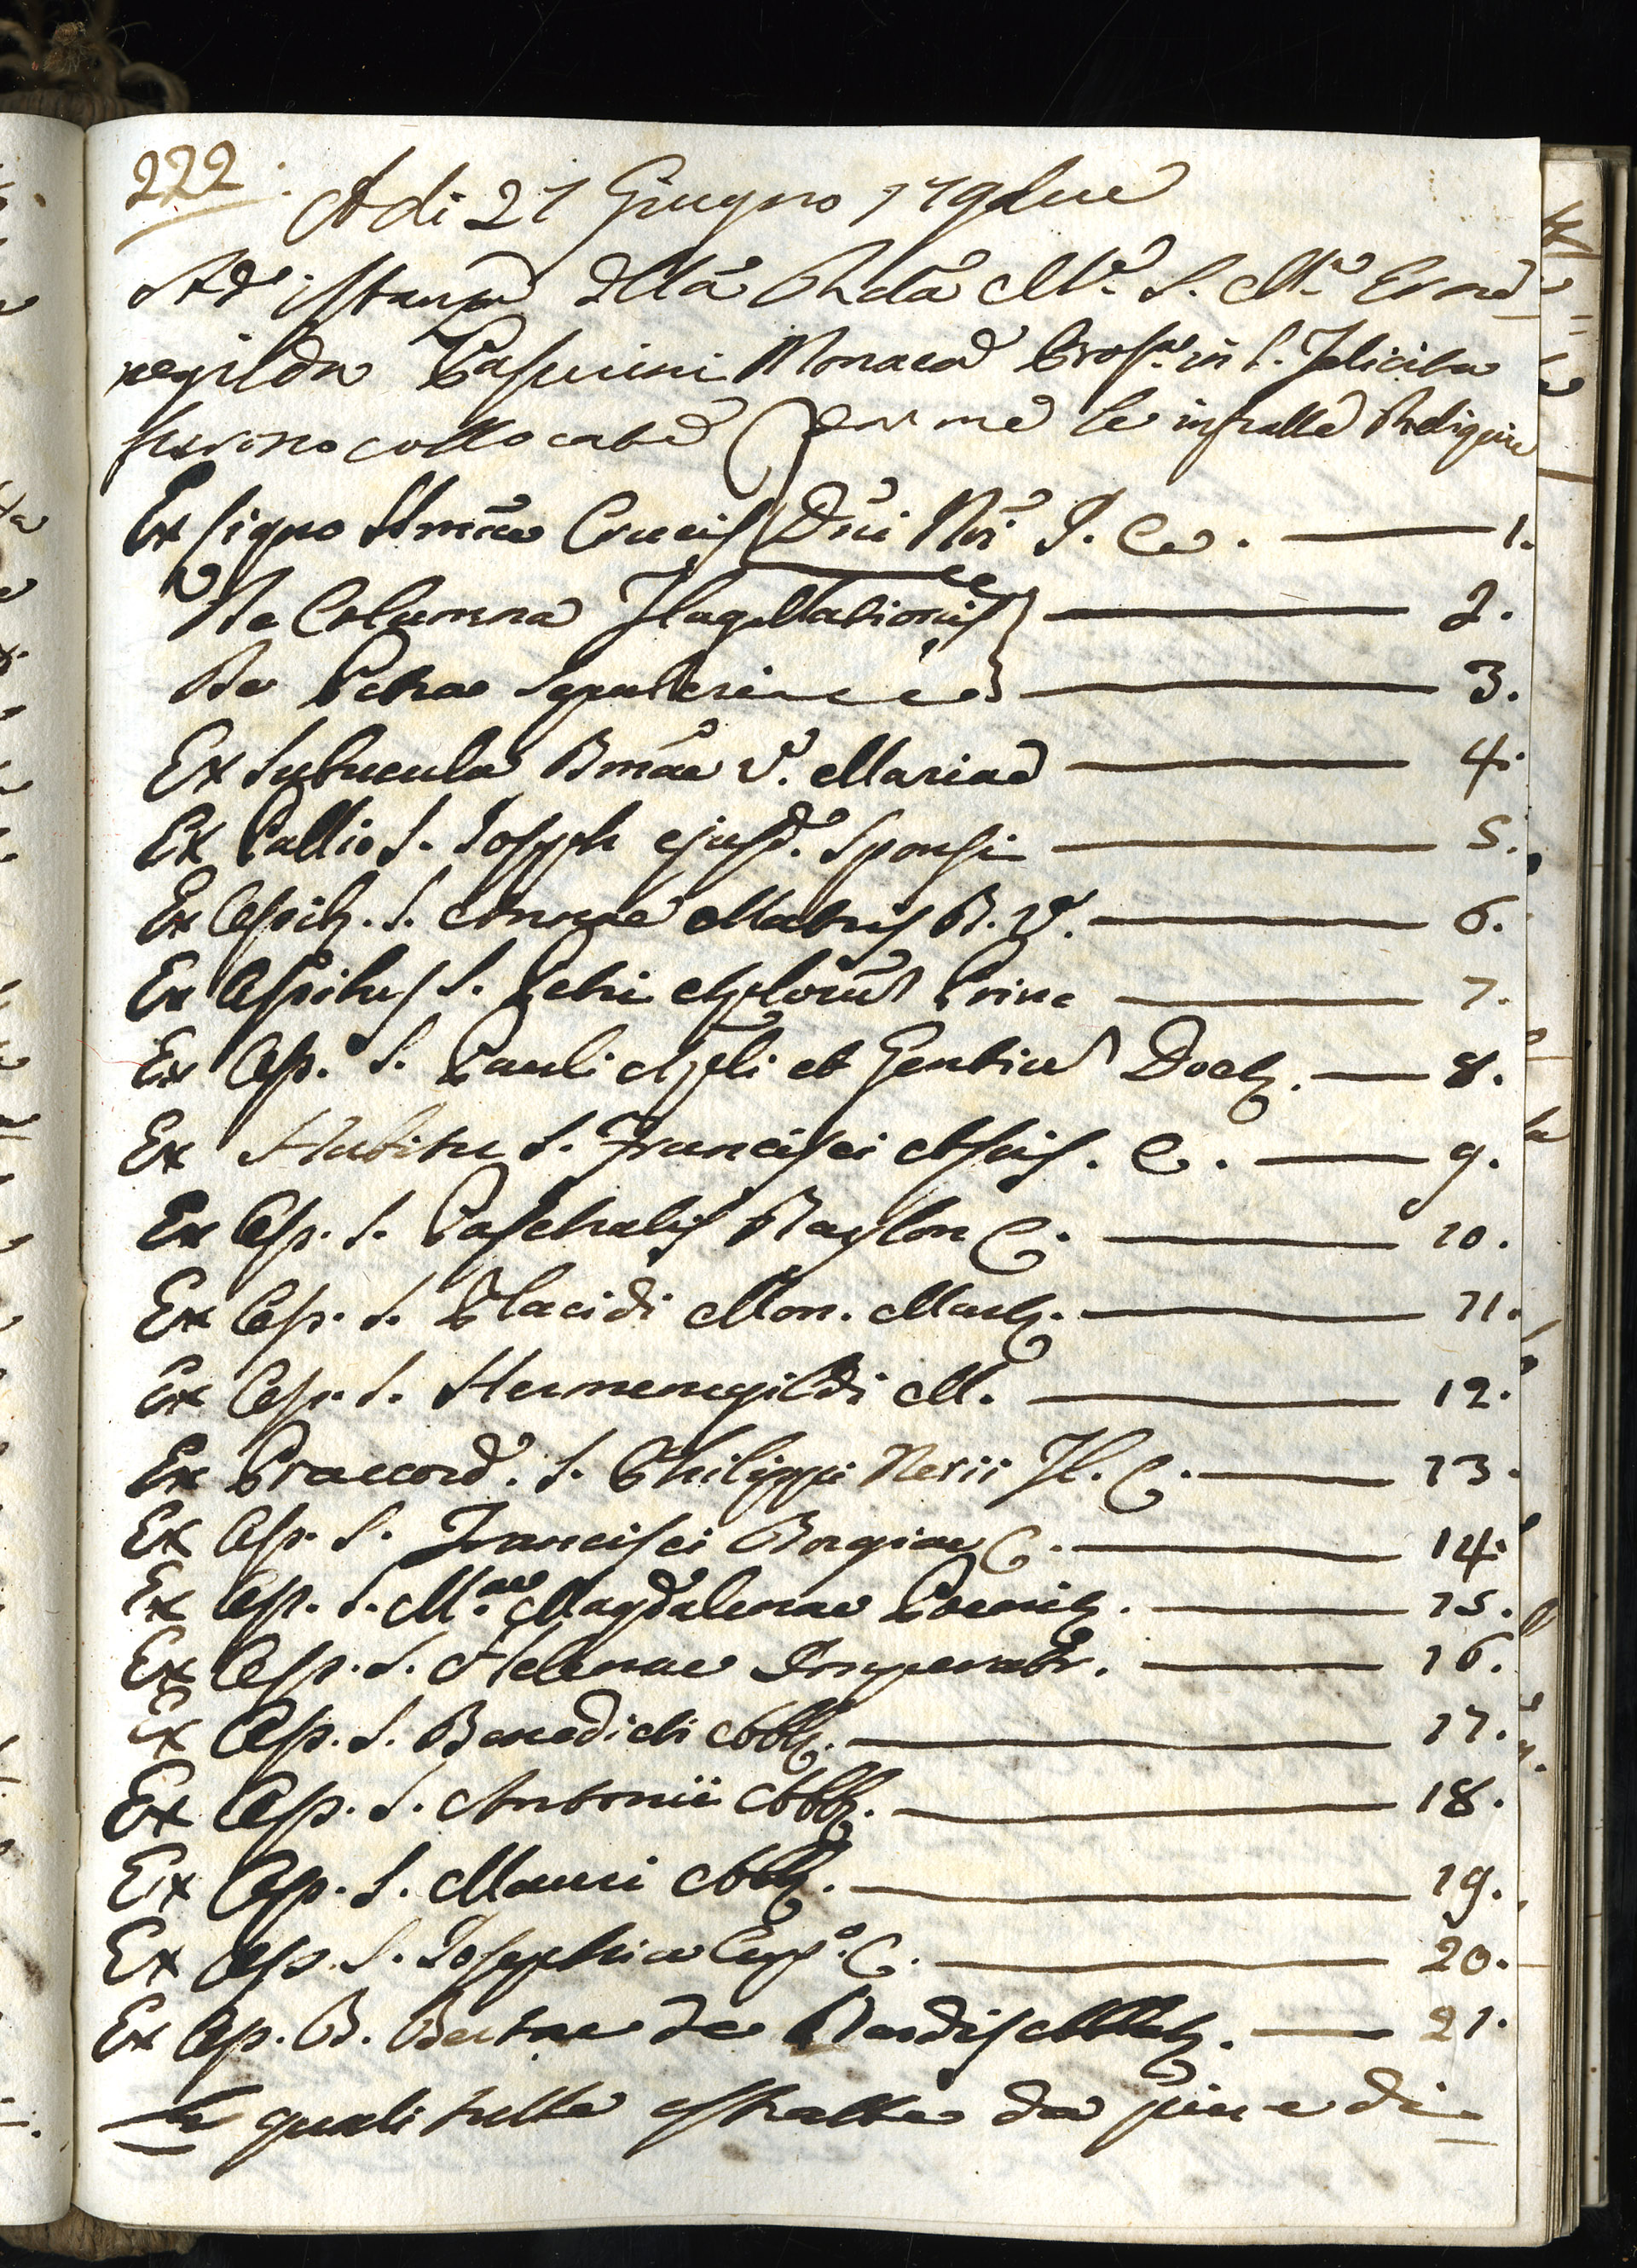 222.
A di 21 Giugno 179due
Ad istanza dlla Rda Me. S. Ma. Erme-
negilda Pasquini Monaca Profa. in S. Felicita
furono collocate per me le infratte Reliquie
Ex ligno SSmae Crucis Dni Nri J. C. 1.
De Columna Flagellationis 2.
De Petra Sepulcri 3.
Ex Subucula Bmae V. Mariae 4.
Ex Pallio S. Joseph ejusd. Sponsi 5.
Ex Ossib. S. Annae Matris B. V. 6.
Ex Ossibus S. Petri Aplorum Princ 7.
Ex Oss. S. Pauli Apli et Gentium Doct. 8.
Ex Habitu S. Francisci Assis. C. 9.
Ex Oss. S. Paschalis Baylon C. 10.
Ex Oss. S. Placidi Mon. Mart. 11.
Ex Oss. S. Hermenegildi M. 12.
Ex Praecord. S. Philippi Nerii Fl. C. 13.
Ex Oss. S. Francisci Borgiae C. 14.
Ex Oss. S. Mae. Magdalenae Poenit. 15.
Ex Oss. S. Helenae Imperatr. 16.
Ex Oss. S. Benedicti Abb. 17.
Ex Oss. S. Antonii Abb. 18.
Ex Oss. S. Mauri Abb. 19.
Ex Oss. S. Josephi a Cupo. C. 20.
Ex Oss. B. Bertae de Bardis Abbat. 21.
le quali tutte estratte da più e di-